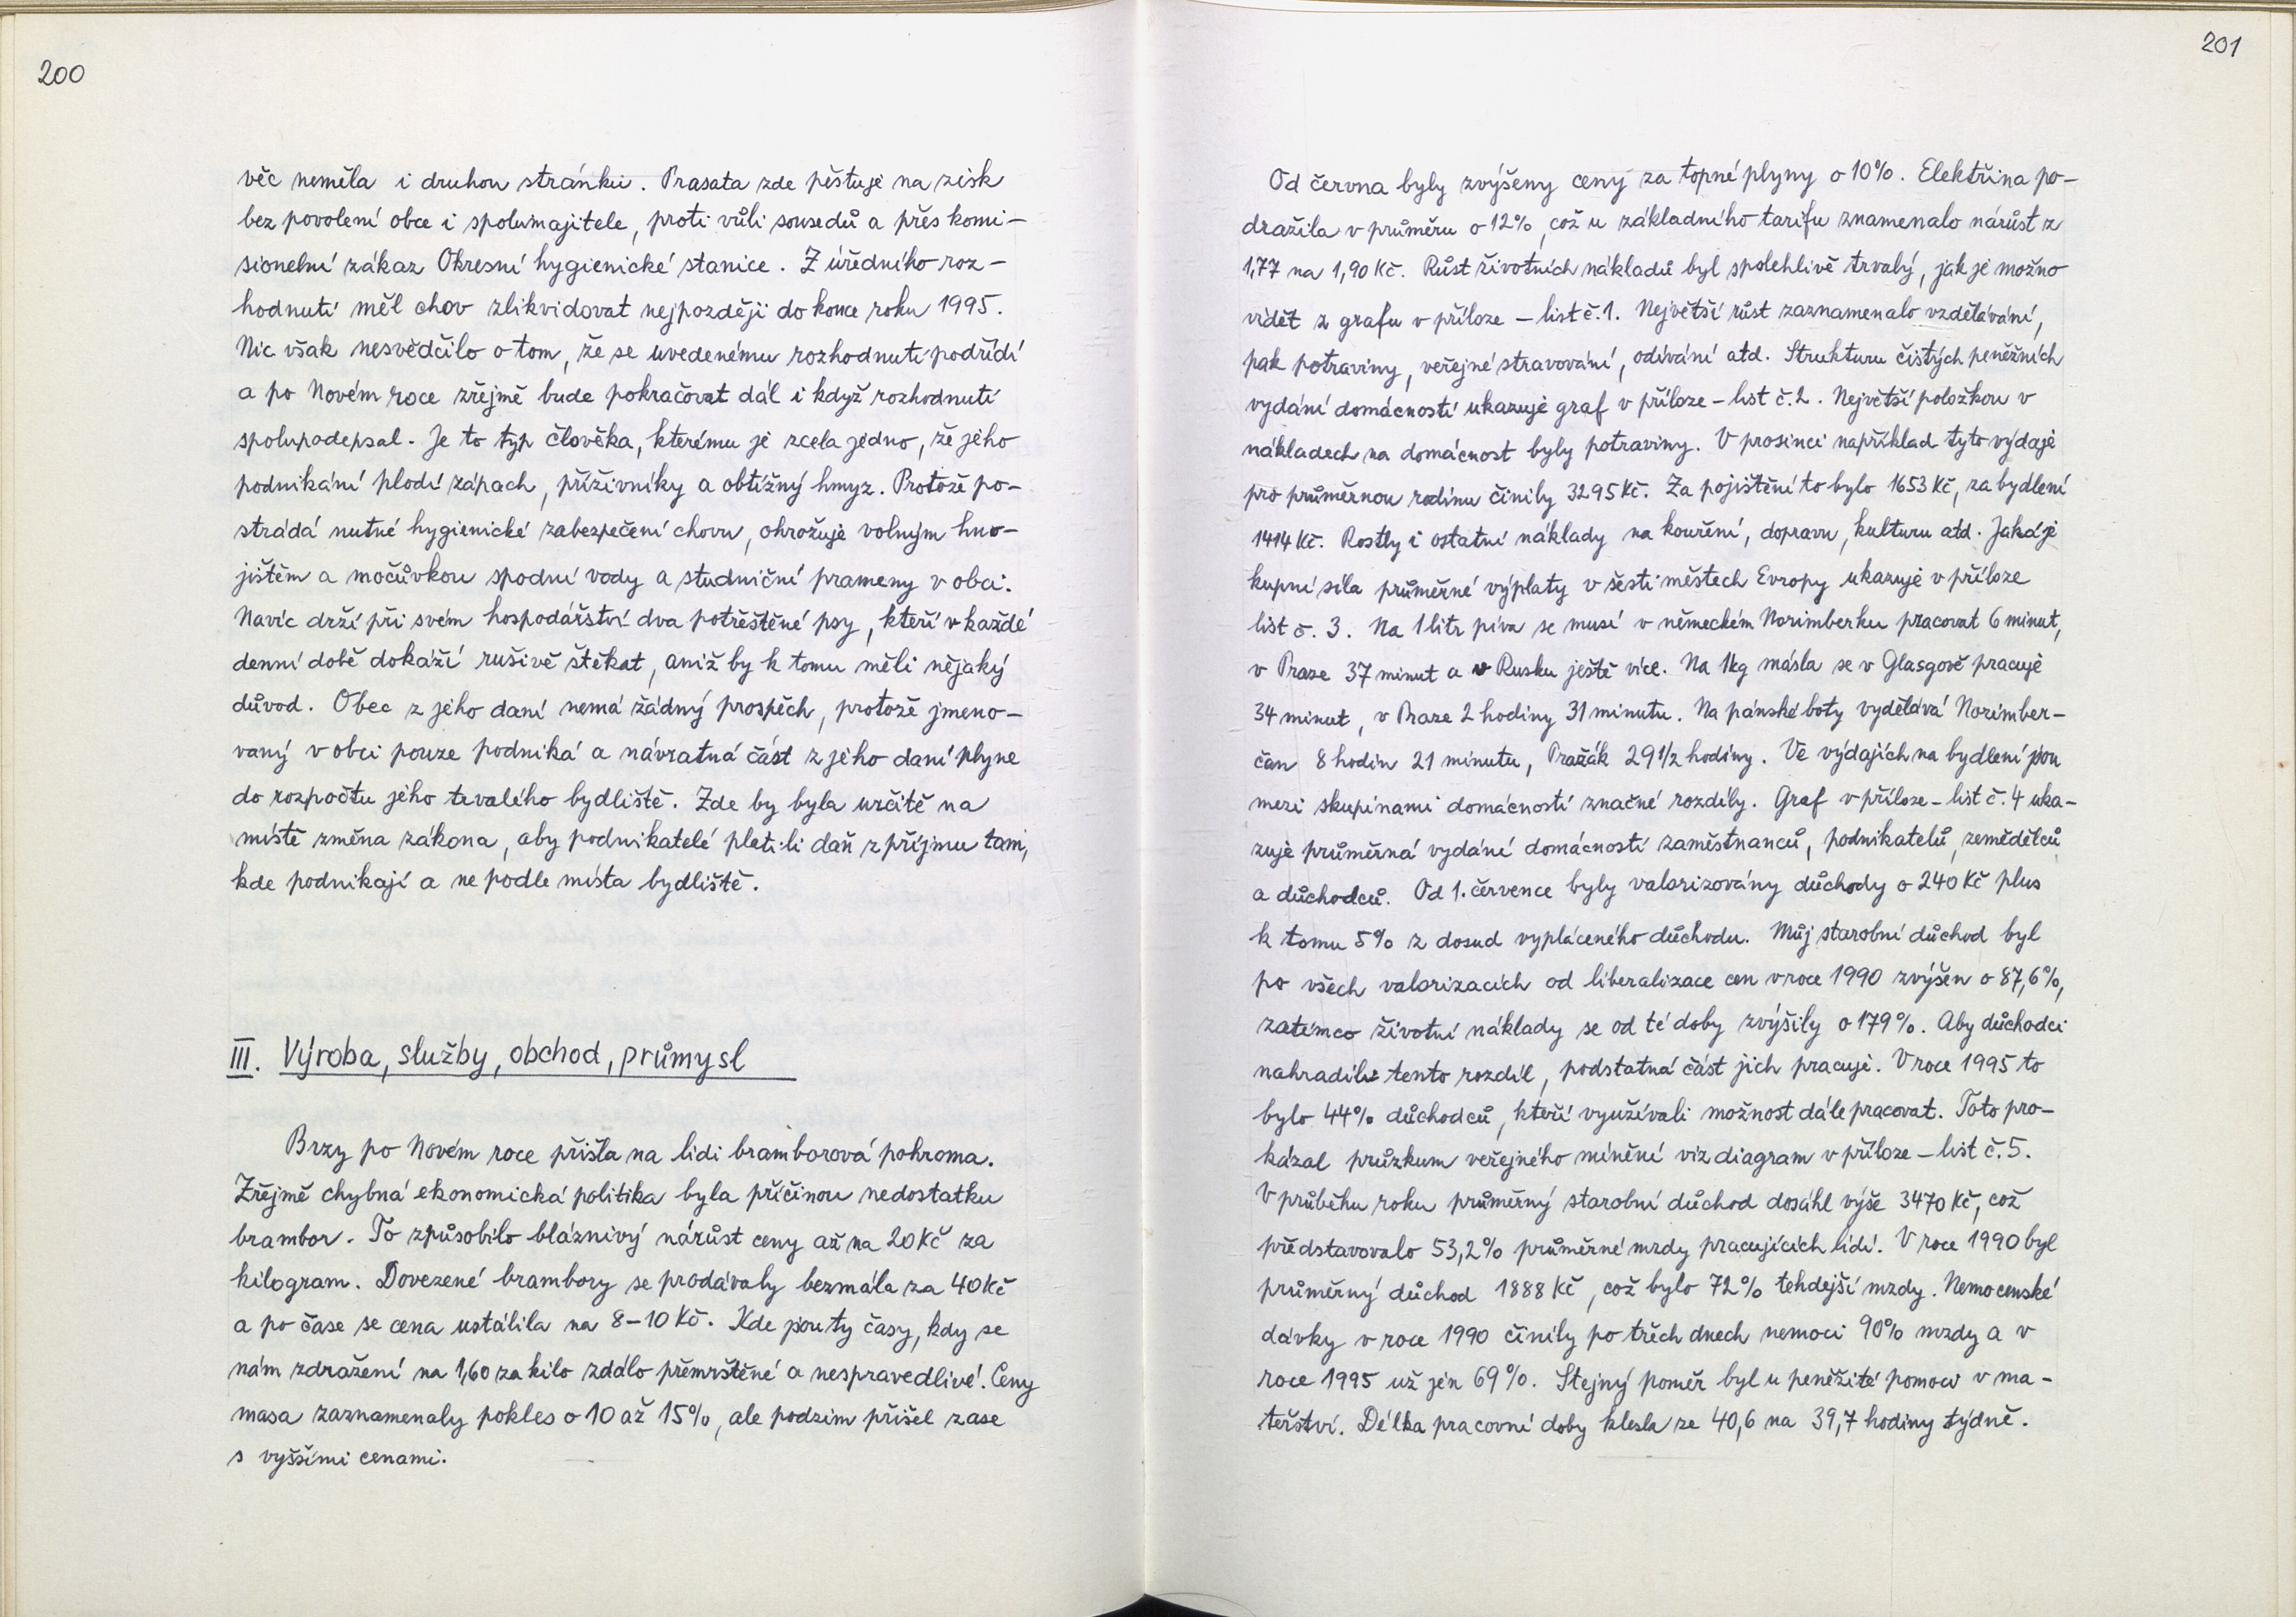 200
věc neměla i druhou stránku. Prasata zde pěstuje na zisk
bez povolení obce i spolumajitele, proti vůli sousedů a přes komi-
sionelní zákaz Okresní hygienické stanice. Z úředního roz-
hodnutí měl chov zlikvidovat nejpozději do konce roku 1995.
Nic však nesvědčilo o tom, že se uvedenému rozhodnutí podřídí
a po Novém roce zřejmě bude pokračovat dál i když rozhodnutí
spolupodepsal. Je to typ člověka, kterému je zcela jedno, že jeho
podnikání plodí zápach, příživníky a obtížný hmyz. Protože po-
strádá nutné hygienické zabezpečení chovu, ohrožuje volným hno-
jištěm a močůvkou spodní vody a studniční prameny v obci.
Navíc drží při svém hospodářství dva potřeštěné psy, kteří v každé
denní době dokáží rušivě štěkat, aniž by k tomu měli nějaký
důvod. Obec z jeho daní nemá žádný prospěch, protože jmeno-
vaný v obci pouze podniká a návratná část z jeho daní plyne
do rozpočtu jeho trvalého bydliště. Zde by byla určitě na
místě změna zákona, aby podnikatelé platili daň z příjmu tam,
kde podnikají a ne podle místa bydliště.
III. Výroba, služby, obchod, průmysl
Brzy po Novém roce přišla na lidi bramborová pohroma.
Zřejmě chybná ekonomická politika byla příčinou nedostatku
brambor. To způsobilo bláznivý nárůst ceny až na 20 Kč za
kilogram. Dovezené brambory se prodávaly bezmála za 40 Kč
a po čase se cena ustálila na 8-10 Kč. Kde jsou ty časy, kdy se
nám zdražení na 1,60 za kilo zdálo přemrštěné a nespravedlivé. Ceny
masa zaznamenaly pokles o 10 až 15%, ale podzim přišel zase
s vyššími cenami.
201
Od června byly zvýšeny ceny za topné plyny o 10%. Elektřina po-
dražila v průměru o 12%, což u základního tarifu znamenalo nárůst z
1,77 na 1,90 Kč. Růst životních nákladů byl spolehlivě trvalý, jak je možno
vidět z grafu v příloze - list č. 1. Největší růst zaznamenalo vzdělávání,
pak potraviny, veřejné stravování, odívání atd. Strukturu čistých peněžních
vydání domácností ukazuje graf v příloze - list č. 2. Největší položkou v
nákladech na domácnost byly potraviny. V prosinci například tyto výdaje
pro průměrnou rodinu činily 3295 Kč. Za pojištění to bylo 1653 Kč, za bydlení
1414 Kč. Rostly i ostatní náklady na kouření, dopravu, kulturu atd. Jaká je
kupní síla průměrné výplaty v šesti městech Evropy ukazuje v příloze
list č. 3. Na 1 litr piva se musí v německém Norimberku pracovat 6 minut,
v Praze 37 minut a v Rusku ještě více. Na 1kg másla se v Glasgově pracuje
34 minut, v Praze 2 hodiny 31 minutu. Na pánské boty vydělává Norimber-
čan 8 hodin 21 minutu, Pražák 29 1/2 hodiny. Ve výdajích na bydlení jsou
mezi skupinami domácností značné rozdíly. Graf v příloze - list č. 4 uka-
zuje průměrná vydání domácností zaměstnanců, podnikatelů, zemědělců
a důchodců. Od 1. července byly valorizovány důchody o 240 Kč plus
k tomu 5% z dosud vypláceného důchodu. Můj starobní důchod byl
po všech valorizacích od liberalizace cen v roce 1990 zvýšen o 87,6%,
zatímco životní náklady se od té doby zvýšily o 179%. Aby důchodci
nahradili tento rozdíl, podstatná část jich pracuje. V roce 1995 to
bylo 44% důchodců, kteří využívali možnost dále pracovat. Toto pro-
kázal průzkum veřejného mínění viz diagram v příloze - list č. 5.
V průběhu roku průměrný starobní důchod dosáhl výše 3470 Kč, což
představovalo 53,2% průměrné mzdy pracujících lidí. V roce 1990 byl
průměrný důchod 1888 Kč, což bylo 72% tehdejší mzdy. Nemocenské
dávky v roce 1990 činily po třech dnech nemoci 90% mzdy a v
roce 1995 už jen 69%. Stejný poměr byl u peněžité pomoci v ma-
teřství. Délka pracovní doby klesla ze 40,6 na 39,7 hodiny týdně.